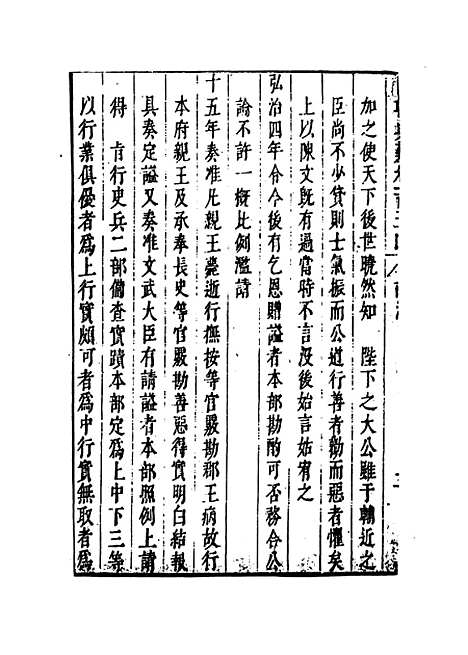 加之使天下後世曉然知　陛下之大公雖于輔近之
臣尚不少貸則士氣振而公道行善者勸而惡者懼矣
上以陳文旣有過當時不言没後始言姑宥之
弘治四年令今後有乞恩贈謚者本部勘酌可否務合公
論不許一槩比例濫請
十五年奏准凡親王薨逝行撫按等官嚴勘郡王病故行
本府親王及承奉長史等官嚴勘善惡得實明白結報
具奏定謚又奏准文武大臣有請謚者本部照例上請
得　旨行史兵二部備查實蹟本部定爲上中下三等
以行業俱優者爲上行實頗可者爲中行實無取者爲